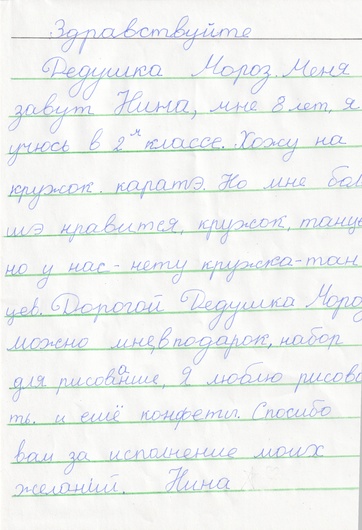 Здравствуйте
Дедушка Мороз. Меня
завут Нина, мне 8 лет, я
учюсь в 2м классе. Хожу на
кружок. каратэ. Но мне бол
шэ нравится, кружок, танце
но у нас - нету кружка-тан
цев. Дорогой Дедушка Мороз
можно мне, в подарок, набор
для рисованше, Я люблю рисова
ть. и ешё конфеты. Спосибо
вам за исполнение моих
желаний. Нина